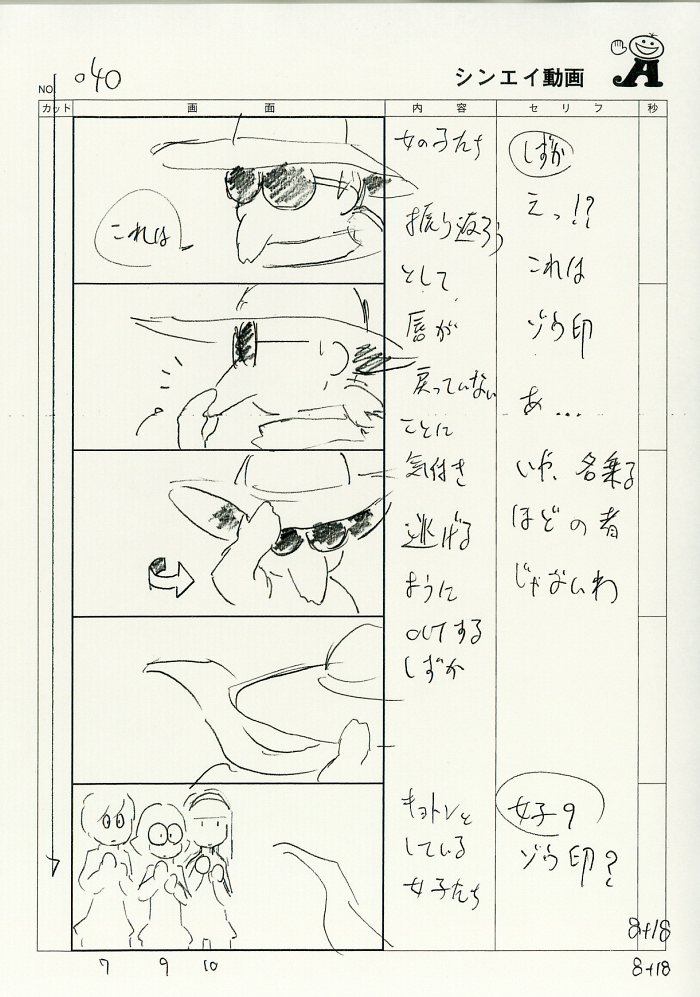 NO. 040
シンエイ動画
カット
画面
内容
セリフ
秒
これは
女の子たち
振り返ろう
として
唇が
戻っていない
ことに
気付き
逃げる
ように
OUTする
しずか
しずか
えっ!?
これは
ゾウ印
あ…
いや、名乗る
ほどの者
じゃないわ
キョトンと
している
女子たち
女子9
ゾウ印?
7
9
10
8+18
8+18